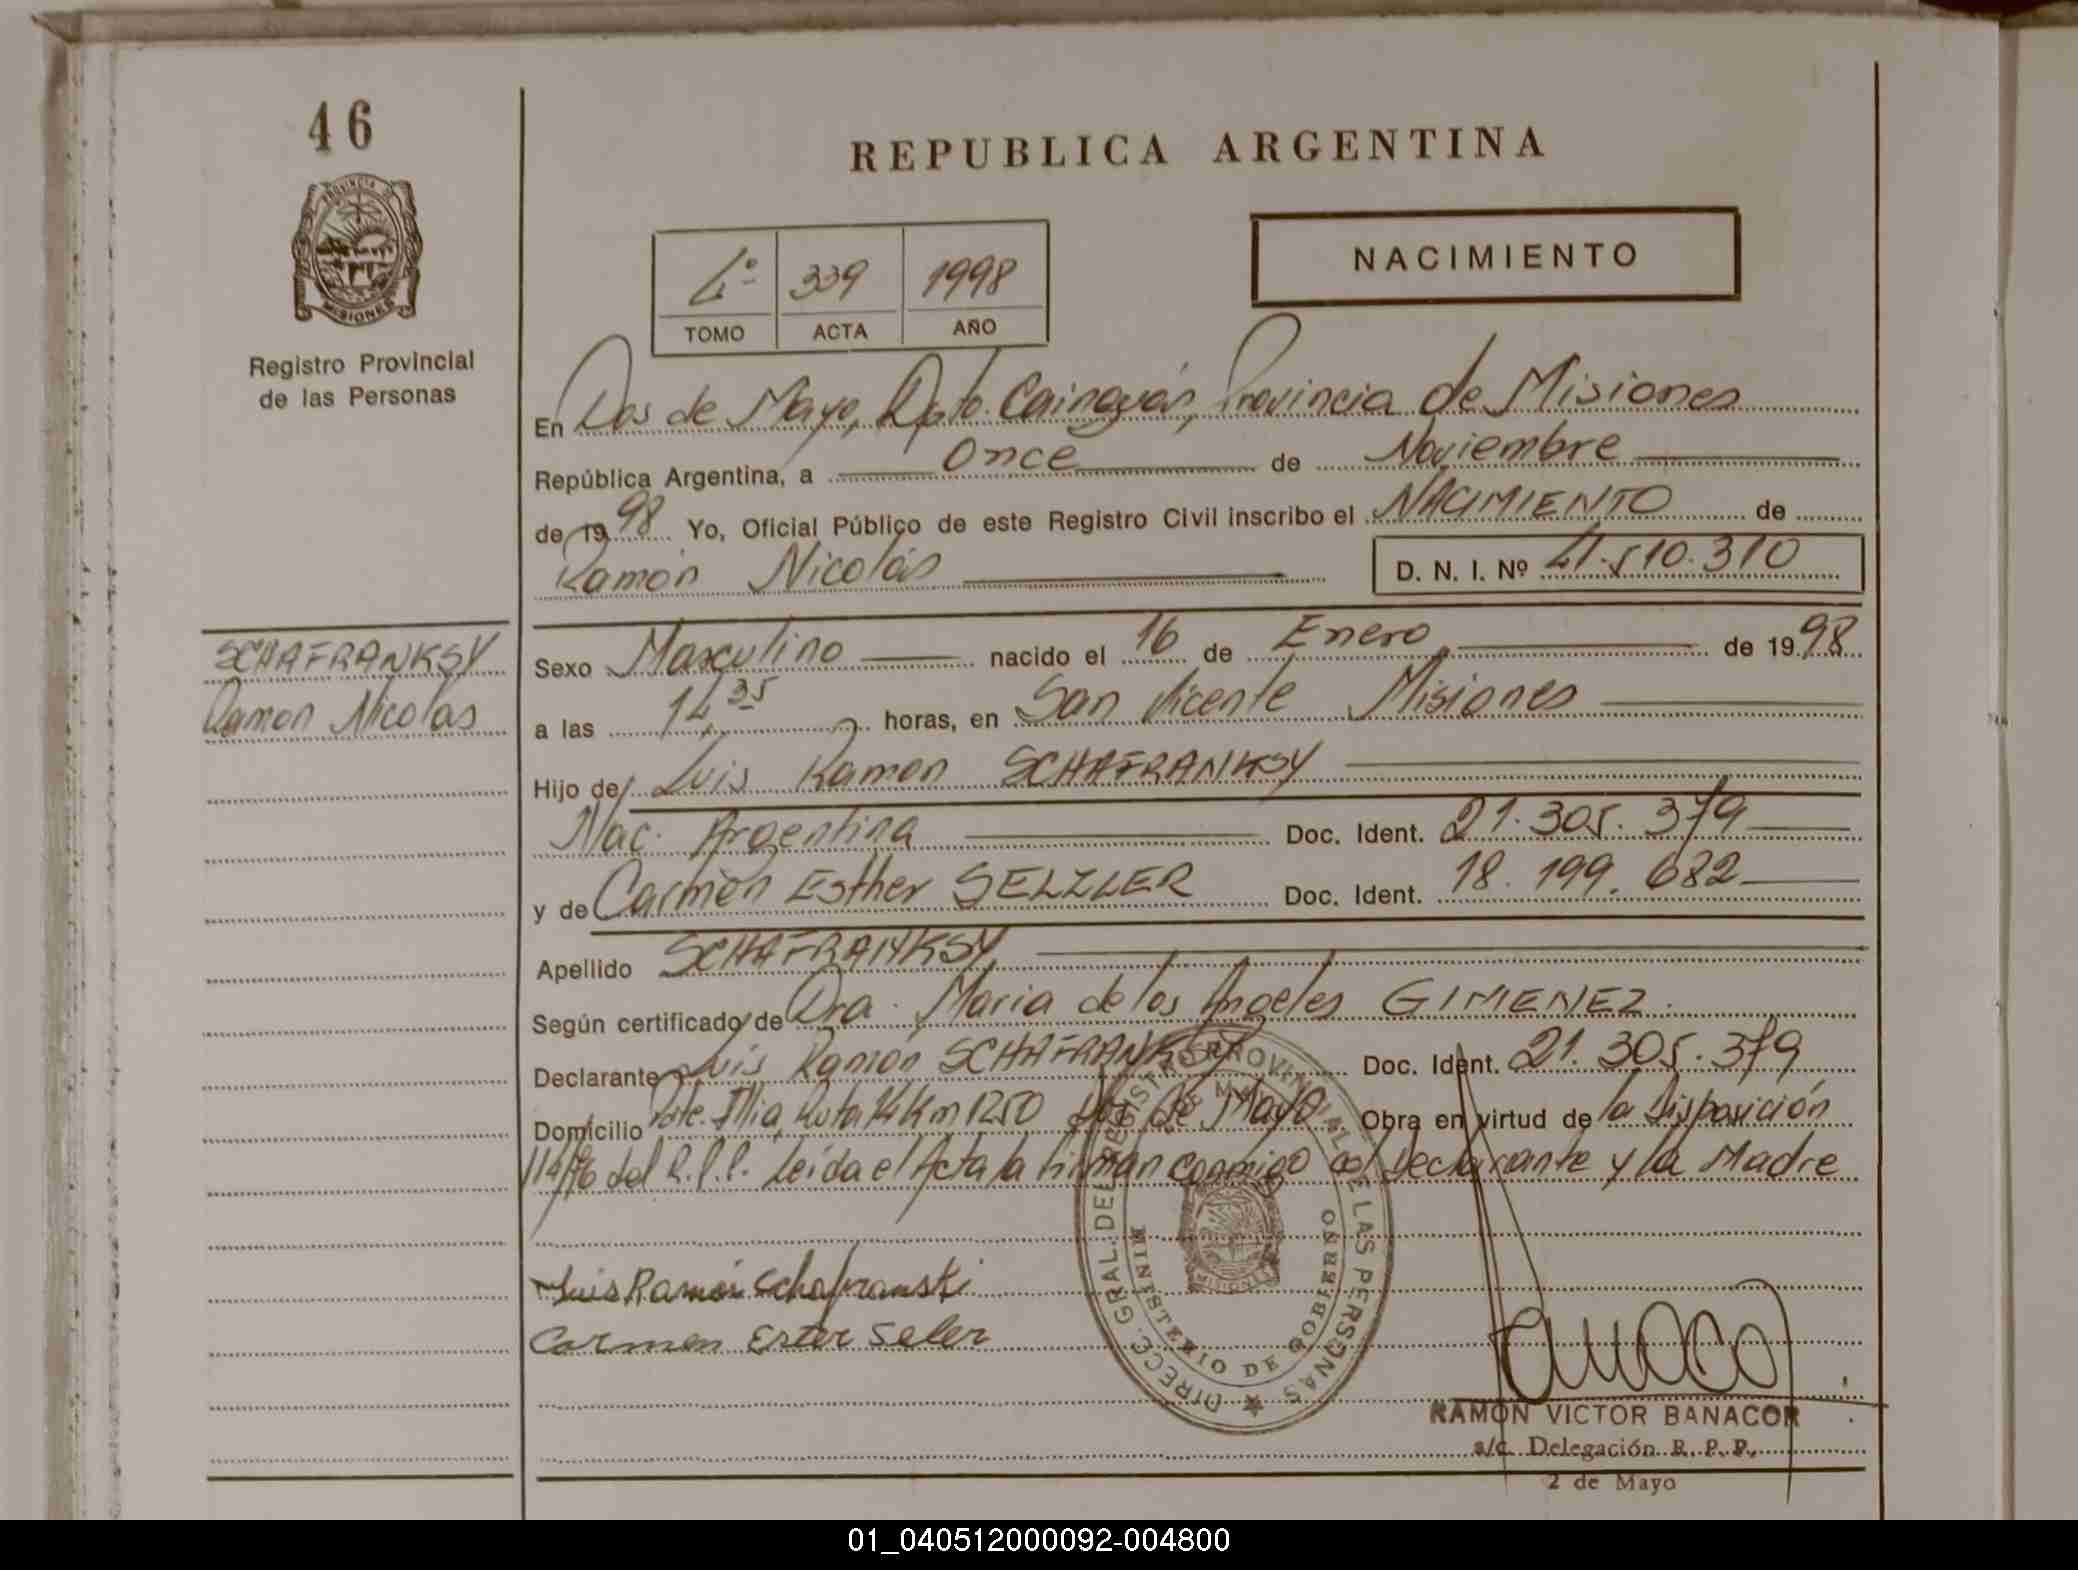 46
PROVINCIA DE
MISIONES
Registro Provincial
de las Personas
REPUBLICA ARGENTINA
NACIMIENTO
4º 339 1998
TOMO ACTA AÑO
En Dos de Mayo, Dpto. Cainguás, Provincia de Misiones
República Argentina, a Once de Noviembre
de 1998 Yo, Oficial Público de este Registro Civil inscribo el NACIMIENTO de
Ramón Nicolás D. N. I. Nº 41.510.310
SCHAFRANKSY
Ramon Nicolas
Sexo Masculino nacido el 16 de Enero de 1998
a las 14,35 horas, en San Vicente Misiones
Hijo de Luis Ramon SCHAFRANKSY
Nac. Argentina Doc. Ident. 21.305.379
y de Carmen Esther SELZLER Doc. Ident. 18.199.682
Apellido SCHAFRANKSY
Según certificado de Dra. Maria de los Angeles GIMENEZ.
Declarante Luis Ramón SCHAFRANKSY Doc. Ident. 21.305.379
Domicilio Pte. Illia, Ruta 14 Km 1250 Dos de Mayo Obra en virtud de la Disposición
114/96 del R.P.P. Leída el Acta la firman conmigo el Declarante y la Madre
Luis Ramón Schafranski
Carmen Ester Seler
DIRECC. GRAL. DEL REGISTRO PROVINCIAL DE LAS PERSONAS
MINISTERIO DE GOBIERNO
MISIONES
RAMON VICTOR BANACOR
a/c. Delegación R. P. P.
2 de Mayo
01_040512000092-004800